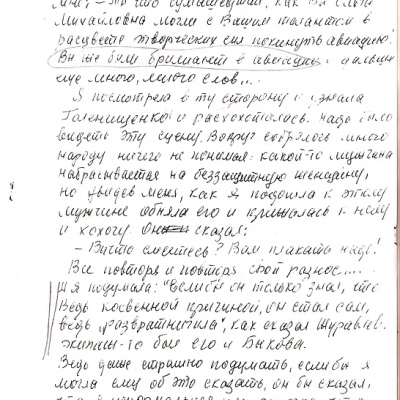 мне, - это что сумасшедший, как Вы
Михайловна могли с Вашим талантом в
расцвете творческих сил покинуть авиацию!
Вы же были бриллиант в авиации и
еще много, много слов....
Я посмотрела в ту сторону и узнала
и расхохоталась. Надо было
видеть эту сцену. Вокруг собралось много
народу ничего не понимая: какой-то мужчина
набрасывается на беззащитную женщину,
но увидев меня, как я подошла к этому
мужчине обняла его и прижалась к нему
и хохочу. Он сказал:
- Вы что смеетесь? Вам плакать надо!
Все повторя и повторя свой разнос....
И я подумала: "Если б он только знал, что
Ведь косвенной причиной, он стал сам,
ведь "развратница", как сказал Журавлев.
экипаж-то был его и Быкова.
Ведь даже страшно подумать, если бы я
могла ему об это сказать, он бы сказал,